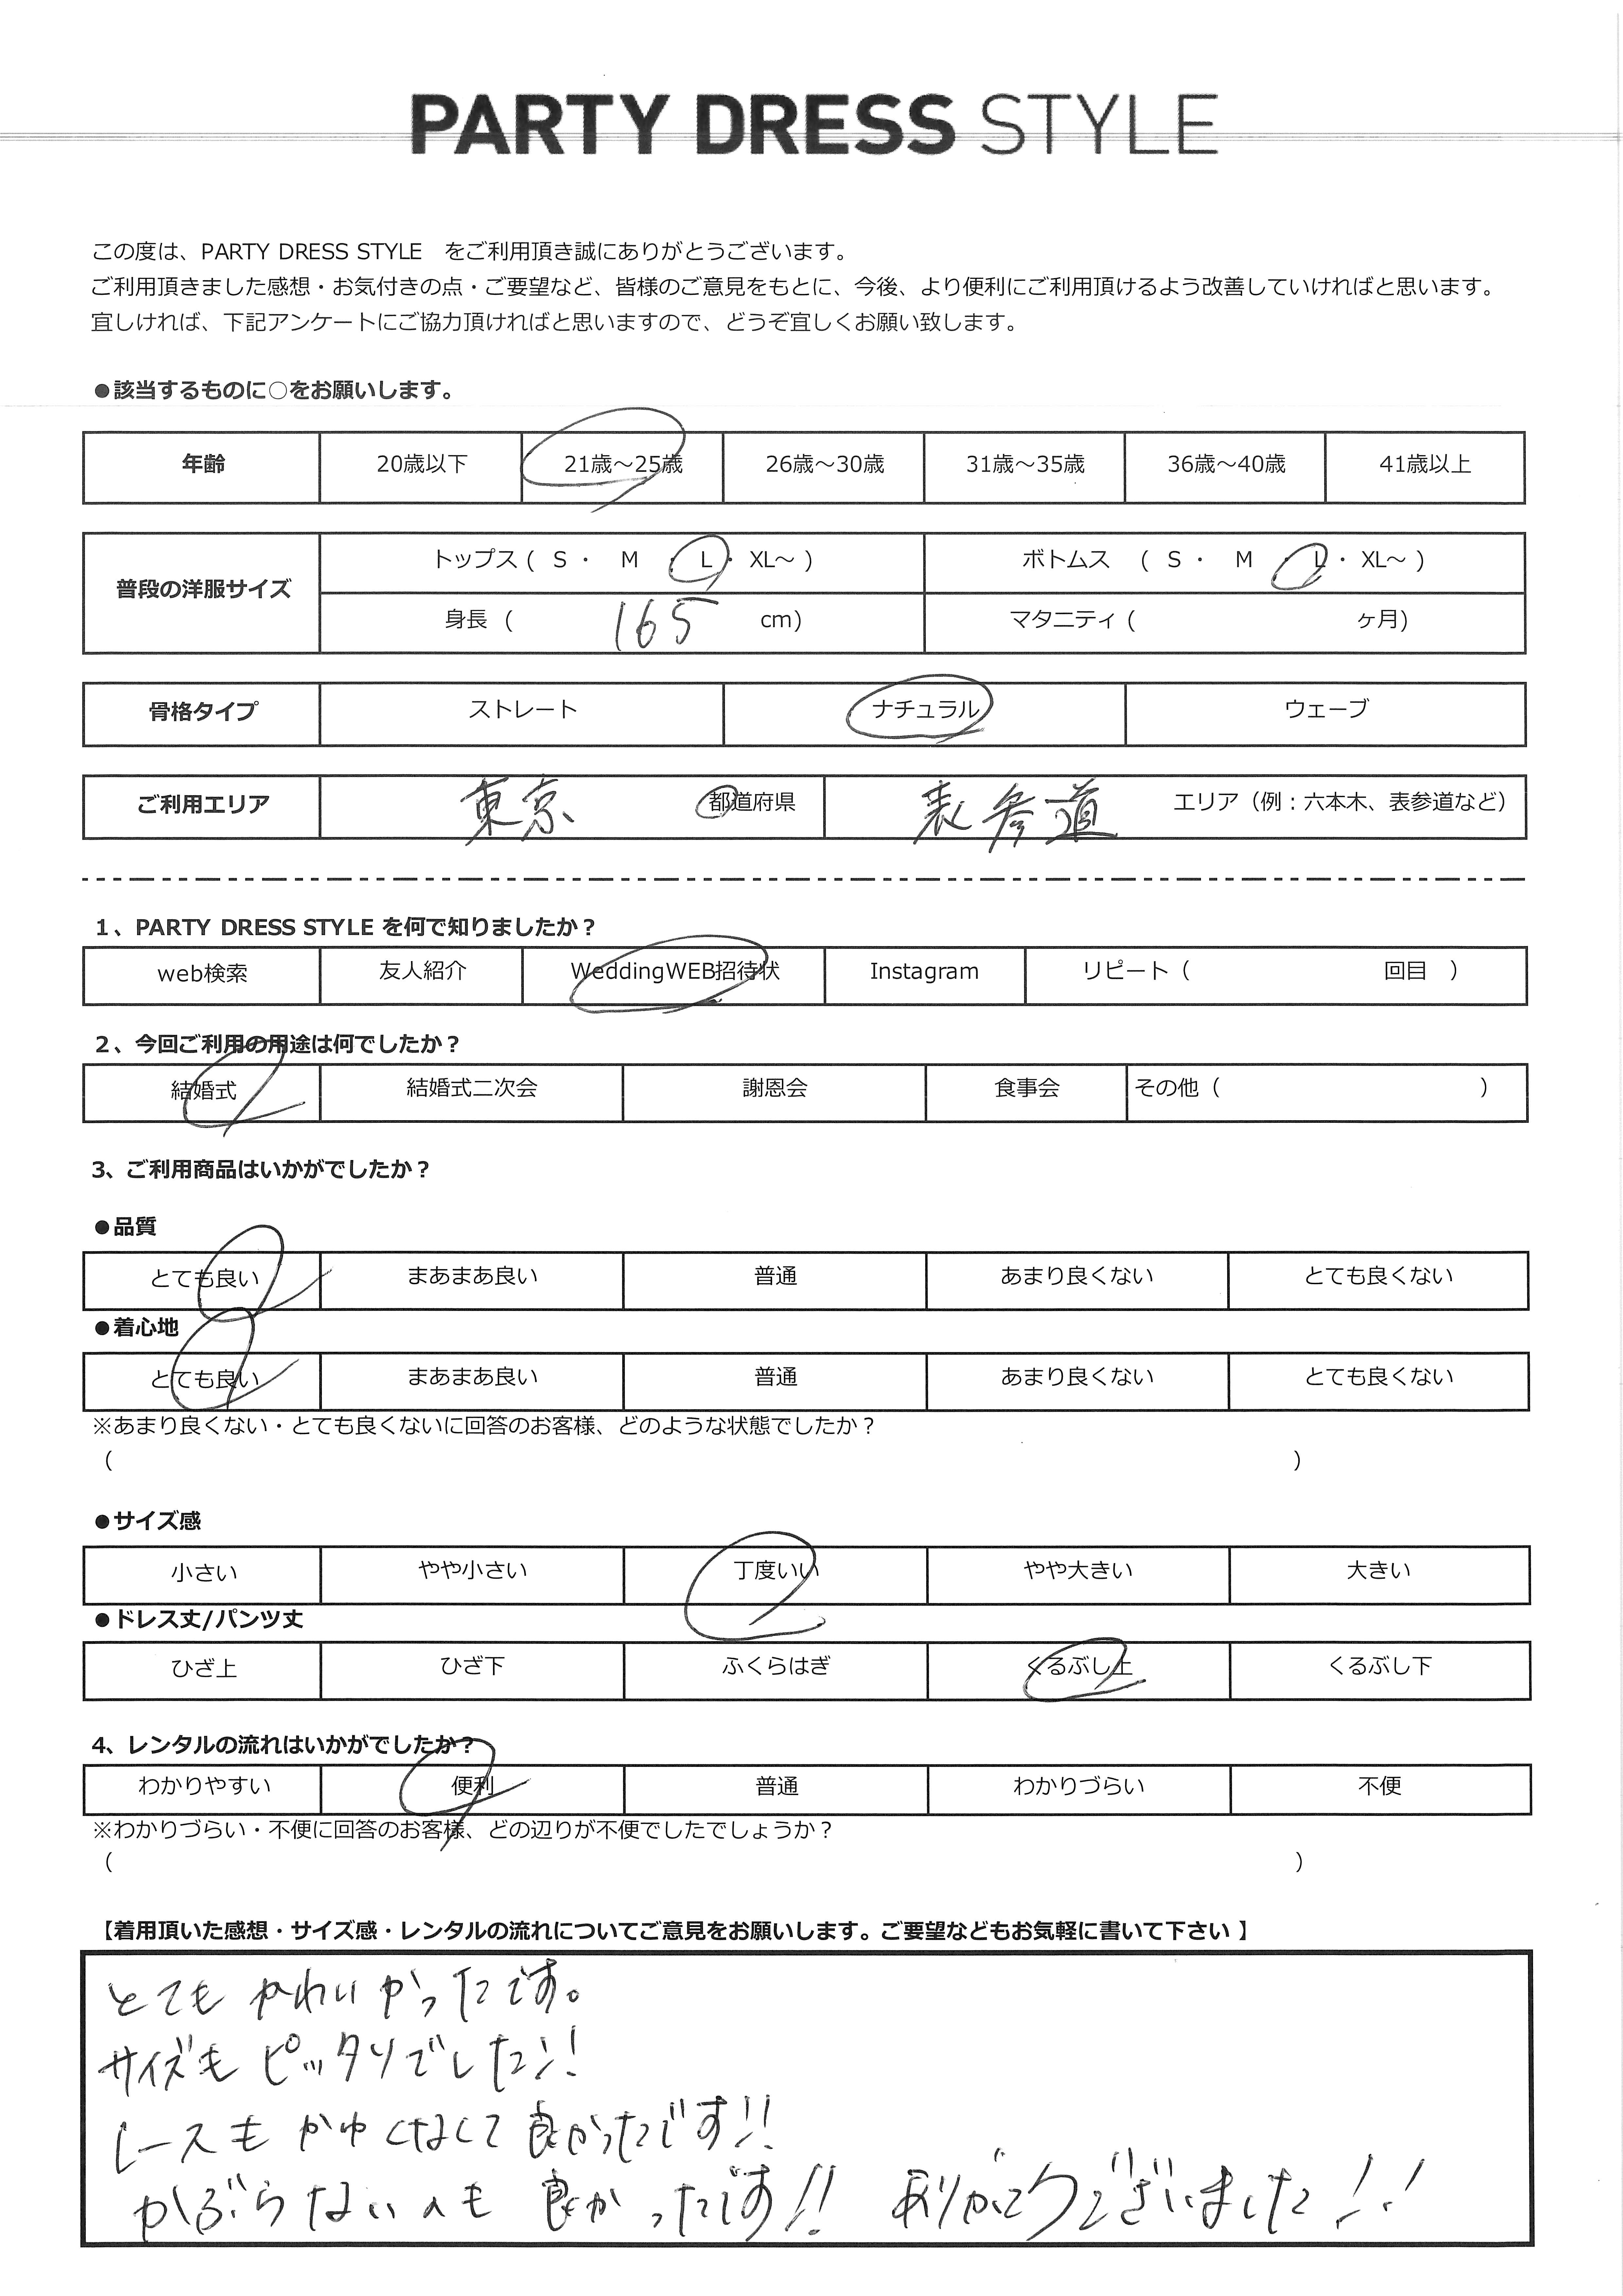 PARTY DRESS STYLE
この度は、PARTY DRESS STYLE　をご利用頂き誠にありがとうございます。
ご利用頂きました感想・お気付きの点・ご要望など、皆様のご意見をもとに、今後、より便利にご利用頂けるよう改善していければと思います。
宜しければ、下記アンケートにご協力頂ければと思いますので、どうぞ宜しくお願い致します。
●該当するものに○をお願いします。
年齢 20歳以下 21歳～25歳 26歳～30歳 31歳～35歳 36歳～40歳 41歳以上
普段の洋服サイズ トップス ( S ・ M ・ L ・ XL～ ) ボトムス ( S ・ M ・ L ・ XL～ )
身長 ( 165 cm) マタニティ ( ヶ月)
骨格タイプ ストレート ナチュラル ウェーブ
ご利用エリア 東京 都道府県 表参道 エリア（例：六本木、表参道など）
1、PARTY DRESS STYLE を何で知りましたか？
web検索 友人紹介 WeddingWEB招待状 Instagram リピート（ 回目 ）
2、今回ご利用の用途は何でしたか？
結婚式 結婚式二次会 謝恩会 食事会 その他（ ）
3、ご利用商品はいかがでしたか？
●品質
とても良い まあまあ良い 普通 あまり良くない とても良くない
●着心地
とても良い まあまあ良い 普通 あまり良くない とても良くない
※あまり良くない・とても良くないに回答のお客様、どのような状態でしたか？
（ ）
●サイズ感
小さい やや小さい 丁度いい やや大きい 大きい
●ドレス丈/パンツ丈
ひざ上 ひざ下 ふくらはぎ くるぶし上 くるぶし下
4、レンタルの流れはいかがでしたか？
わかりやすい 便利 普通 わかりづらい 不便
※わかりづらい・不便に回答のお客様、どの辺りが不便でしたでしょうか？
（ ）
【着用頂いた感想・サイズ感・レンタルの流れについてご意見をお願いします。ご要望などもお気軽に書いて下さい 】
とても かわいかったです。
サイズも ピッタリでした!!
レースも かゆくなくて 良かったです!!
かぶらないのも 良かったです!! ありがとうございました!!